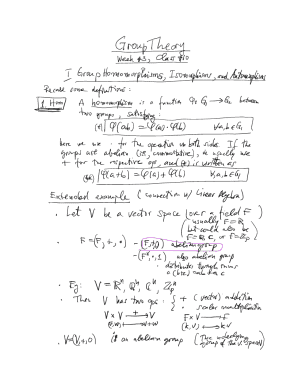 Group Theory
Week #3, Class #10
I Group Homomorphisms, Isomorphisms, and Automorphisms
Recall some definitions:
1. Hom A homomorphism is a function φ: G₁ → G₂ between
two groups, satisfying:
(*) φ(ab) = φ(a)·φ(b) ∀a,b∈G₁
here we use · for the operation on both sides. If the
groups are abelian (i.e., commutative), we usually use
+ for the respective op, and (*) is written as
φ(a+b) = φ(a)+φ(b) ∀a,b∈G₁
Extended example (connection w/ Linear Algebra)
· Let V be a vector space (over a field F)
usually F=ℝ
but could also be
F=ℚ, ℂ, or F=ℤp
· F = (F, +, ·) - (F,+,0) abelian group
- (F*,·,1) also abelian group
distributes through sums
· Eg: V = ℝⁿ, ℚⁿ, ℂⁿ, ℤpⁿ
· Then V has two ops: + (vector) addition
· scalar multiplication
V×V → V F×V → V
(v,w) ↦ v+w (k,v) ↦ kv
· V=(V,+,0) is an abelian group (The underlying
group of the v. space V)